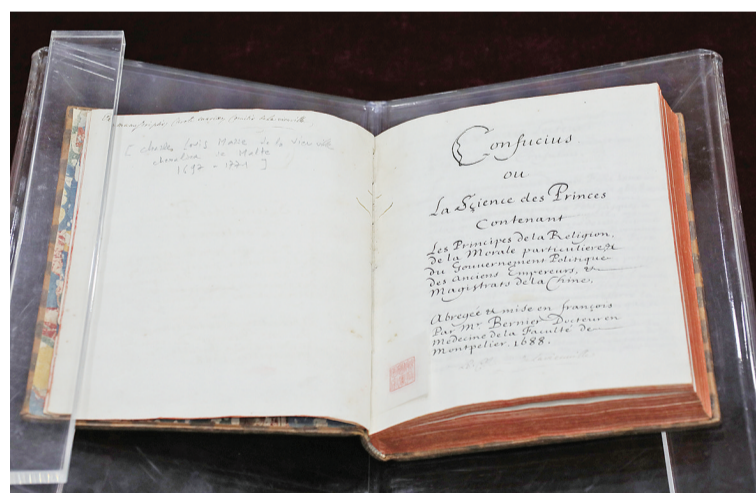 [ Charles Louis Marie de la Vieuville
de Malte
1697 - 1771 ]
Confucius
ou
La Sçience des Princes
Contenant
Les Principes de la Religion,
de la Morale particuliere, &
du Gouvernement Politique
des anciens Empereurs, &
Magistrats de la Chine.
Abregée & mise en françois
Par Mr Bernier Docteur en
Medecine de la Faculté de
Montpelier. 1688.